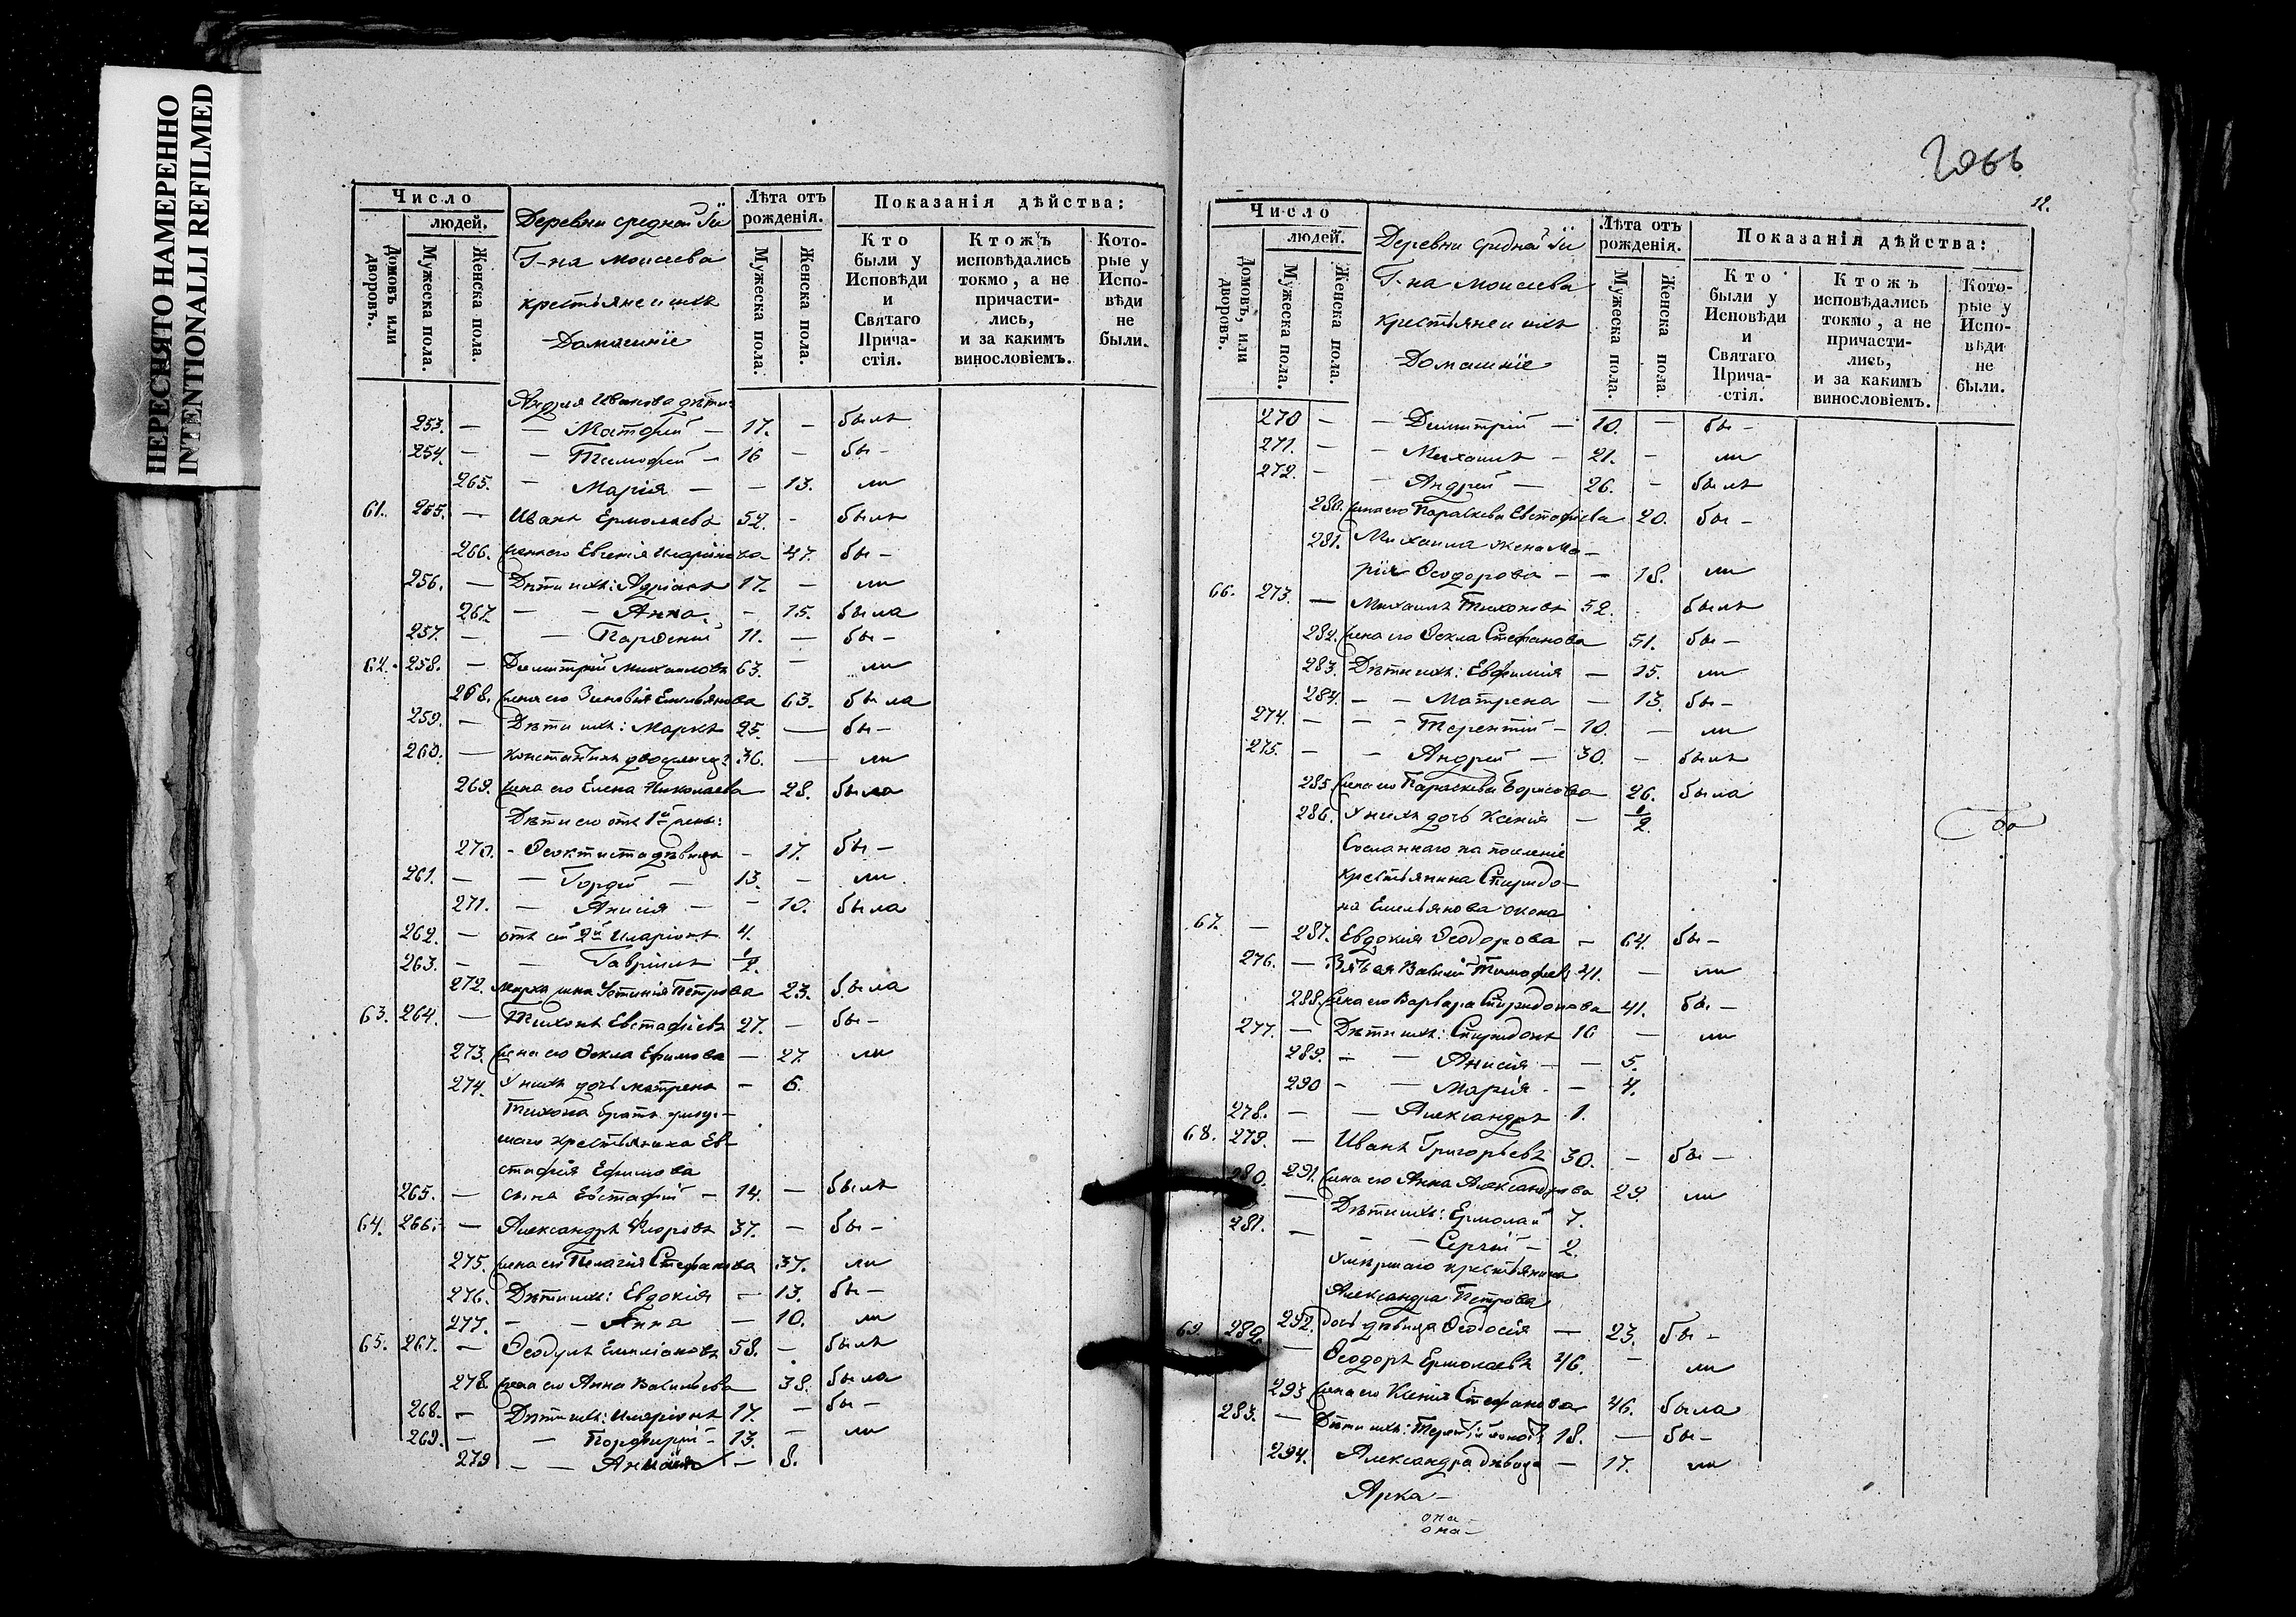 ПЕРЕСНЯТО НАМЕРЕННО
INTENTIONALLI REFILMED
Число
людей.
Домовъ или дворовъ.
Мужеска пола.
Женска пола.
Деревни средней
Г-на Моисеева
крестьяне и ихъ
Домашніе
Лѣта отъ рожденія.
Мужеска пола.
Женска пола.
Показанія дѣйства:
Кто были у Исповѣди и Святаго Прича-стія.
Ктожъ исповѣдались токмо, а не причасти-лись, и за какимъ винословіемъ.
Кото-рые у Испо-вѣди не были.
Андрея Иванова дѣти:
253. — — Матфей — 17. — былъ
254. — — Тимофей — 16 — бы —
265. — Марія — — 13. ли
61. 255. — Иванъ Ермолаевъ 52. - былъ
266. жена его Евгенія Иларіонова 47. бы —
256. — Дѣти ихъ: Адріанъ 17. — ли
267 — — Анна. - 15. была
257. — — Парѳеній 11. — бы —
62. 258. — Димитрій Михаиловъ 63. — ли
268. жена его Зиновія Емельянова 63. была
259. — Дѣти ихъ: Маркъ 25. — бы —
260. — Константинъ двоеженецъ 36. — ли
269. жена его Елена Николаева 28. была
Дѣти его отъ 1й жены:
270. - Ѳеоктиста дѣвица - 17. бы —
261. — — Гордій — 13. — ли
271. — Анисія — - 10. была
262. — отъ 2й Иларіонъ 4.
263. — — Гавріилъ 1/2.
272. Марка жена Устинія Петрова 23. была
63. 264. — Тихонъ Евстафіевъ 27. — бы —
273. жена его Ѳекла Ефимова — 27. ли
274. У нихъ дочь Матрена — 6.
Тихона братъ умер-
шаго крестьянина Ев-
стафія Ефимова
265. — сына Евстафій — 14. — былъ
64. 266. — Александръ Флоровъ 37. — бы —
275. жена его Пелагія Стефанова 37. ли
276. Дѣти ихъ: Евдокія — 13. бы —
277. — — Анна — 10. ли
65. 267. — Ѳеодулъ Емиліановъ 58. — былъ
278 жена его Анна Васильева 38. была
268. — Дѣти ихъ: Иларіонъ 17. — бы —
269. — — Порфирій — 13. — ли
279 — — — 8.
12.
Число
людей.
Домовъ, или дворовъ.
Мужеска пола.
Женска пола.
Деревни средней
Г-на Моисеева
крестьяне и ихъ
Домашніе
Лѣта отъ рожденія.
Мужеска пола.
Женска пола.
Показанія дѣйства:
Кто были у Исповѣди и Святаго Прича-стія.
Ктожъ исповѣдались токмо, а не причасти-лись, и за какимъ винословіемъ.
Кото-рые у Испо-вѣди не были.
270 — — Димитрій — 10. — бы —
271. — — Михаилъ — 21. - ли
272. — - Андрей — 26. - былъ
280. жена его Параскева Евстафіева 20. бы —
281. Михаила жена Ма-
рія Ѳеодорова — — 18. ли
66. 273. — Михаилъ Тихоновъ 52. былъ
282. жена его Ѳекла Стефанова 51. бы —
283. Дѣти ихъ: Евфимія — 15. ли
284. — — Матрена — 13. бы —
274. — — Терентій — 10. — ли
275. — — Андрей — 30. — былъ
285. жена его Параскева Борисова 26. была
286. У нихъ дочь Ксенія — 1/2.
Сосланнаго на поселеніе
крестьянина Спиридо-
на Емельянова жена
67. — 287. Евдокія Ѳеодорова — 64. бы —
276. — Зять ея Василій Тимофеевъ 41. — ли
288. жена его Варвара Спиридонова 41. бы —
277. — Дѣти ихъ: Спиридонъ 16 — ли
289. — — Анисія — — 5.
290 — — Марія — — 4.
278. — — Александръ 1.
68. 279. — Иванъ Григорьевъ 30. — бы —
291. жена его Анна Александрова 29 ли
280. — Дѣти ихъ: Ермолай 7.
281. — — Сергій — 2.
Умершаго крестьянина
Александра Петрова
292. дочь дѣвица Ѳеодосія — 23. бы —
69. 282. — Ѳеодоръ Ермолаевъ 46. — ли
293 жена его Ксенія Стефанова 46. была
283. — Дѣти ихъ: 18. — бы —
294. Александра дѣвица — 17. ли
Арка —